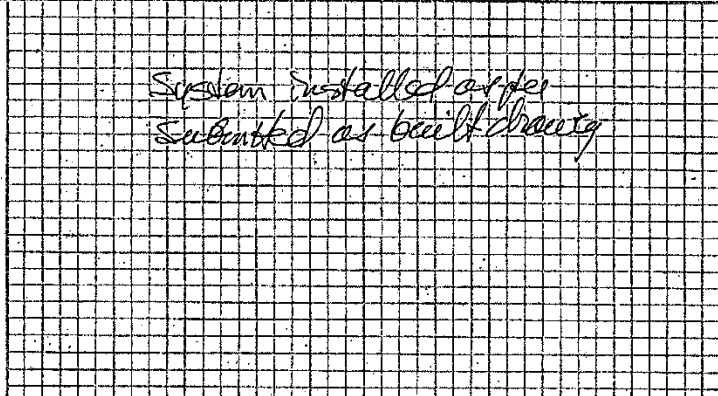 System installed as per
Submitted as built drawing